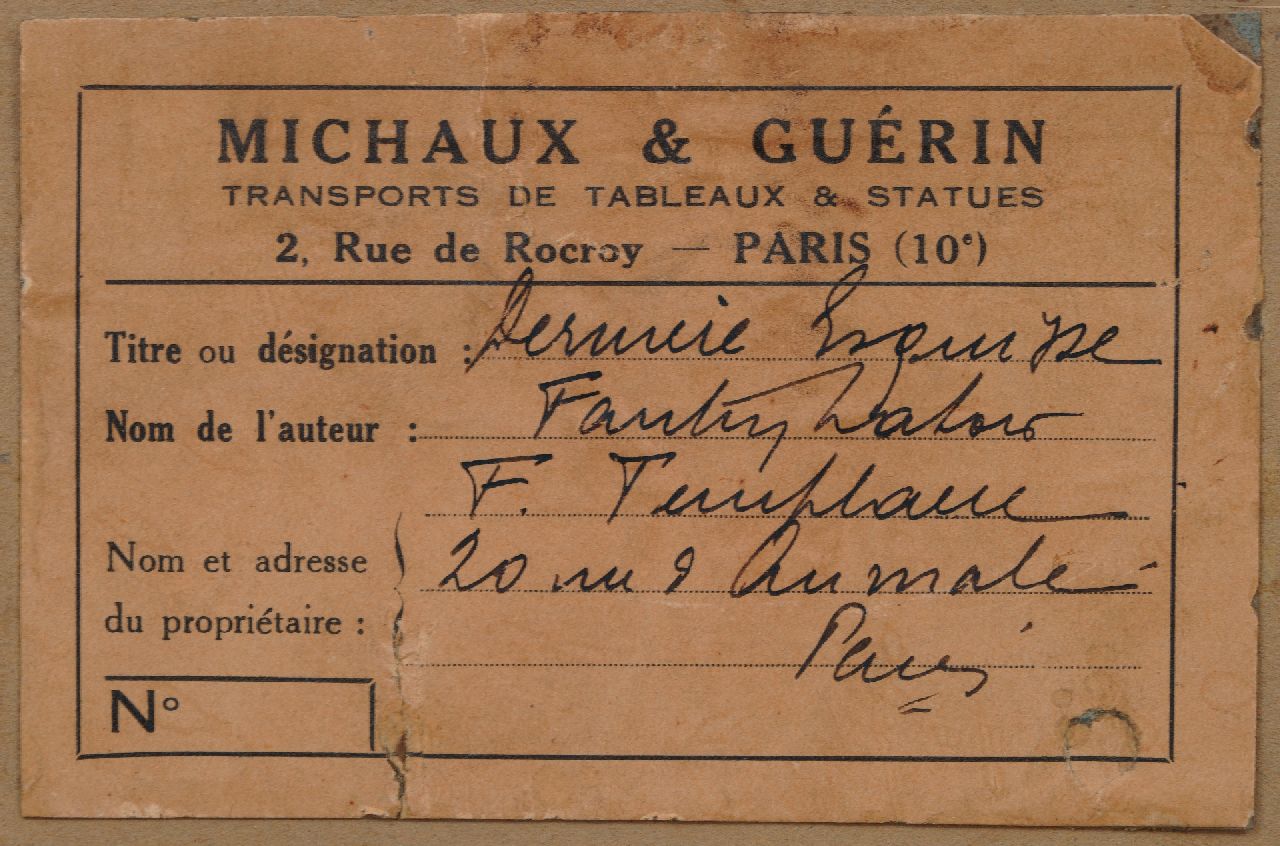 MICHAUX & GUÉRIN
TRANSPORTS DE TABLEAUX & STATUES
2, Rue de Rocroy — PARIS (10e)
Titre ou désignation : Derniere Esquisse
Nom de l'auteur : Fantin Latour
F. Templaere
Nom et adresse du propriétaire : 20 rue d Aumale
Paris
N°